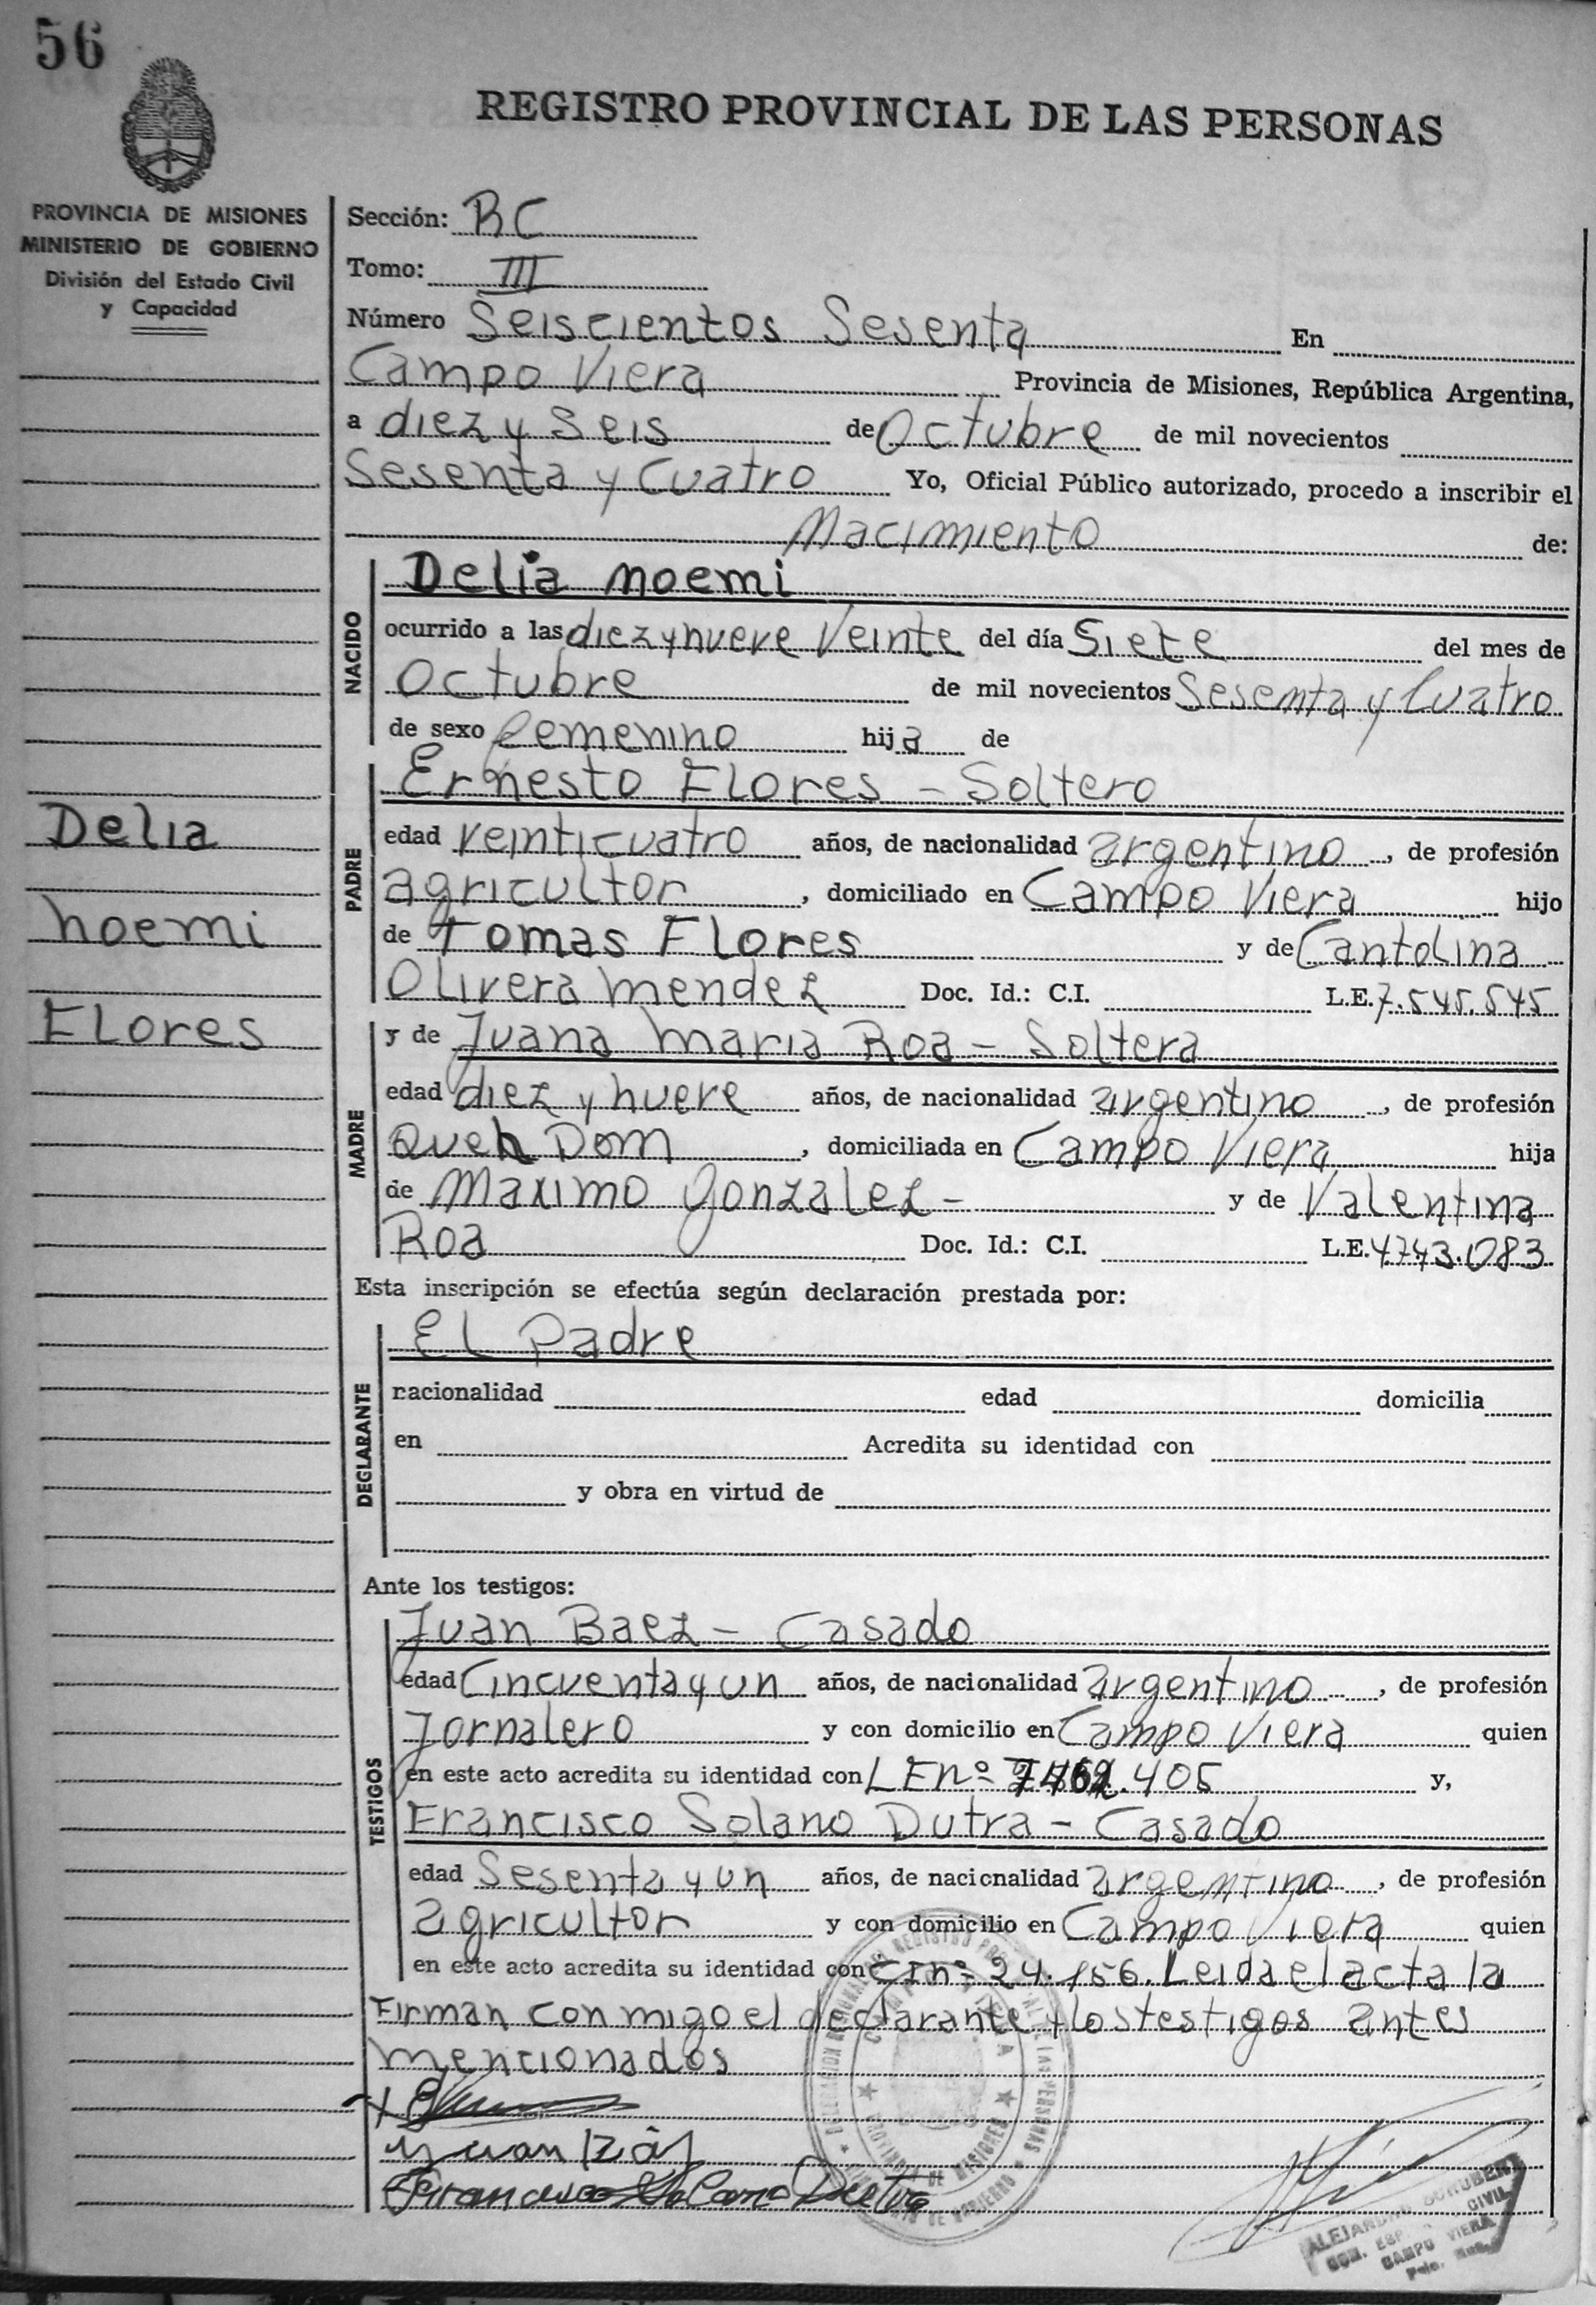 56
REGISTRO PROVINCIAL DE LAS PERSONAS
PROVINCIA DE MISIONES
MINISTERIO DE GOBIERNO
División del Estado Civil
y Capacidad
Delia
noemi
Flores
Sección: RC
Tomo: III
Número Seiscientos Sesenta En
Campo Viera Provincia de Misiones, República Argentina,
a diez y seis de Octubre de mil novecientos
Sesenta y Cuatro Yo, Oficial Público autorizado, procedo a inscribir el
Nacimiento de:
NACIDO
Delia noemi
ocurrido a las diez y nueve Veinte del día Siete del mes de
Octubre de mil novecientos Sesenta y Cuatro
de sexo femenino hija de
PADRE
Ernesto Flores - Soltero
edad veinticuatro años, de nacionalidad argentino, de profesión
agricultor, domiciliado en Campo Viera hijo
de Tomas Flores y de Cantolina
Olivera mendez Doc. Id.: C.I. L.E. 7.545.545
MADRE
y de Juana maria Roa - Soltera
edad diez y nueve años, de nacionalidad argentino, de profesión
Queh Dom, domiciliada en Campo Viera hija
de Maximo Gonzalez - y de Valentina
Roa Doc. Id.: C.I. L.E. 4.743.083
Esta inscripción se efectúa según declaración prestada por:
DECLARANTE
El Padre
nacionalidad edad domicilia
en Acredita su identidad con
y obra en virtud de
Ante los testigos:
TESTIGOS
Juan Baez - Casado
edad Cincuenta y un años, de nacionalidad argentino, de profesión
Jornalero y con domicilio en Campo Viera quien
en este acto acredita su identidad con LE nº .405 y,
Francisco Solano Dutra - Casado
edad Sesenta y un años, de nacionalidad argentino, de profesión
agricultor y con domicilio en Campo Viera quien
en este acto acredita su identidad con CI nº 24.156. Leida el acta la
Firman conmigo el declarante y los testigos antes
mencionados
Juan
Francisco Solano Dutra
PROVINCIA DE MISIONES
ALEJANDRO SCHUBERT
CIVIL
CAMPO VIERA